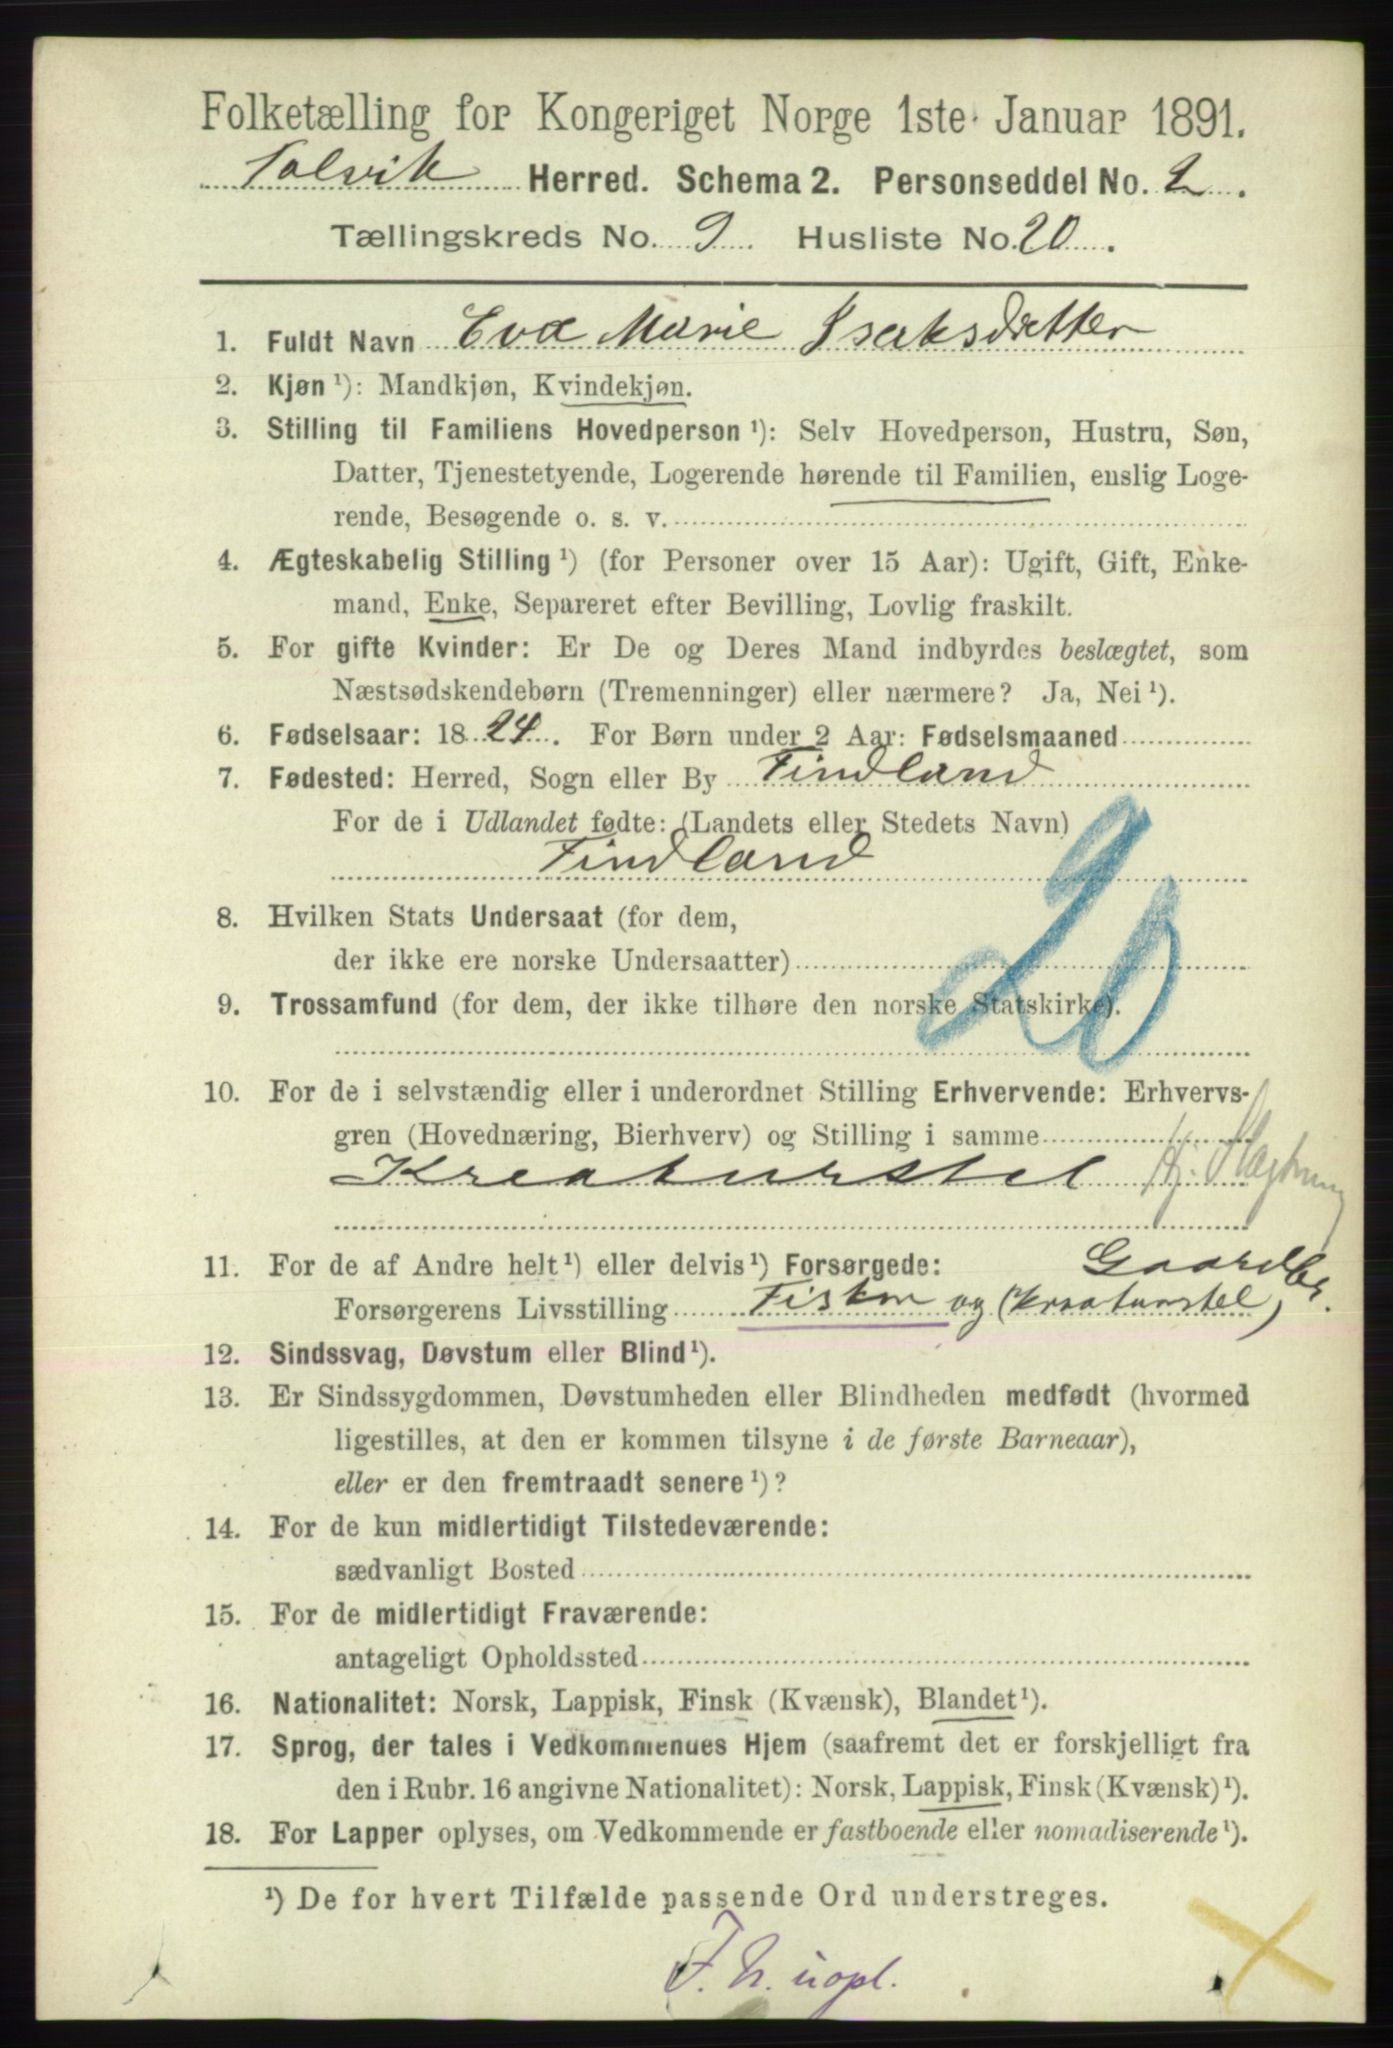 Folketælling for Kongeriget Norge 1ste Januar 1891.
Talvik Herred. Schema 2. Personseddel No. 2.
Tællingskreds No. 9 Husliste No. 20.
1. Fuldt Navn Eva Marie Isaksdatter
2. Kjøn ¹): Mandkjøn, Kvindekjøn.
3. Stilling til Familiens Hovedperson ¹): Selv Hovedperson, Hustru, Søn,
Datter, Tjenestetyende, Logerende hørende til Familien, enslig Loge-
rende, Besøgende o. s. v.
4. Ægteskabelig Stilling ¹) (for Personer over 15 Aar): Ugift, Gift, Enke-
mand, Enke, Separeret efter Bevilling, Lovlig fraskilt.
5. For gifte Kvinder: Er De og Deres Mand indbyrdes beslægtet, som
Næstsødskendebørn (Tremenninger) eller nærmere? Ja, Nei ¹).
6. Fødselsaar: 1824. For Børn under 2 Aar: Fødselsmaaned
7. Fødested: Herred, Sogn eller By Findland
For de i Udlandet fødte: (Landets eller Stedets Navn)
Findland
20
8. Hvilken Stats Undersaat (for dem,
der ikke ere norske Undersaatter)
9. Trossamfund (for dem, der ikke tilhøre den norske Statskirke).
10. For de i selvstændig eller i underordnet Stilling Erhvervende: Erhvervs-
gren (Hovednæring, Bierhverv) og Stilling i samme
Kreaturstel Hj.
11. For de af Andre helt ¹) eller delvis ¹) Forsørgede: Gaardbr.
Forsørgerens Livsstilling Fisker og (Kreaturstel)
12. Sindssvag, Døvstum eller Blind ¹).
13. Er Sindssygdommen, Døvstumheden eller Blindheden medfødt (hvormed
ligestilles, at den er kommen tilsyne i de første Barneaar),
eller er den fremtraadt senere ¹)?
14. For de kun midlertidigt Tilstedeværende:
sædvanligt Bosted
15. For de midlertidigt Fraværende:
antageligt Opholdssted
16. Nationalitet: Norsk, Lappisk, Finsk (Kvænsk), Blandet ¹).
17. Sprog, der tales i Vedkommendes Hjem (saafremt det er forskjelligt fra
den i Rubr. 16 angivne Nationalitet): Norsk, Lappisk, Finsk (Kvænsk) ¹).
18. For Lapper oplyses, om Vedkommende er fastboende eller nomadiserende ¹).
¹) De for hvert Tilfælde passende Ord understreges.
F. N. uopl.